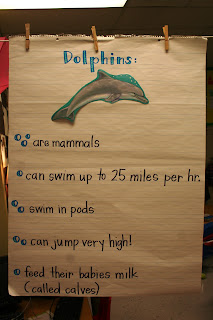 Dolphins:
are mammals
can swim up to 25 miles per hr.
swim in pods
can jump very high!
feed their babies milk
(called calves)